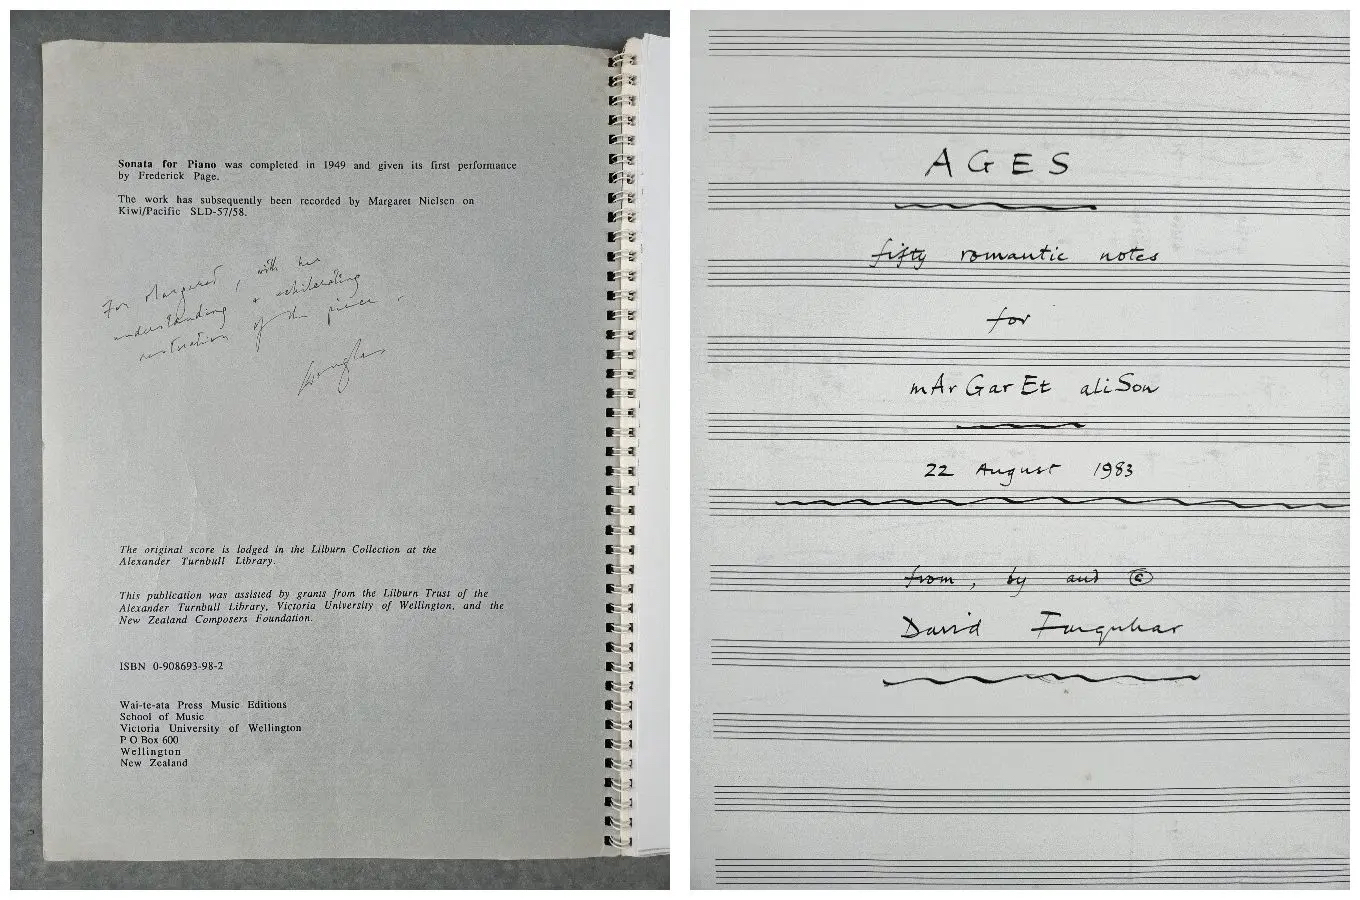 Sonata for Piano was completed in 1949 and given its first performance
by Frederick Page.
The work has subsequently been recorded by Margaret Nielsen on
Kiwi/Pacific SLD-57/58.
For Margaret, with her
understanding + exhilarating
restoration of this piece.
Douglas
The original score is lodged in the Lilburn Collection at the
Alexander Turnbull Library.
This publication was assisted by grants from the Lilburn Trust of the
Alexander Turnbull Library, Victoria University of Wellington, and the
New Zealand Composers Foundation.
ISBN 0-908693-98-2
Wai-te-ata Press Music Editions
School of Music
Victoria University of Wellington
P O Box 600
Wellington
New Zealand
AGES
fifty romantic notes
for
mAr Gar Et aliSon
22 August 1983
from, by and ©
David Farquhar